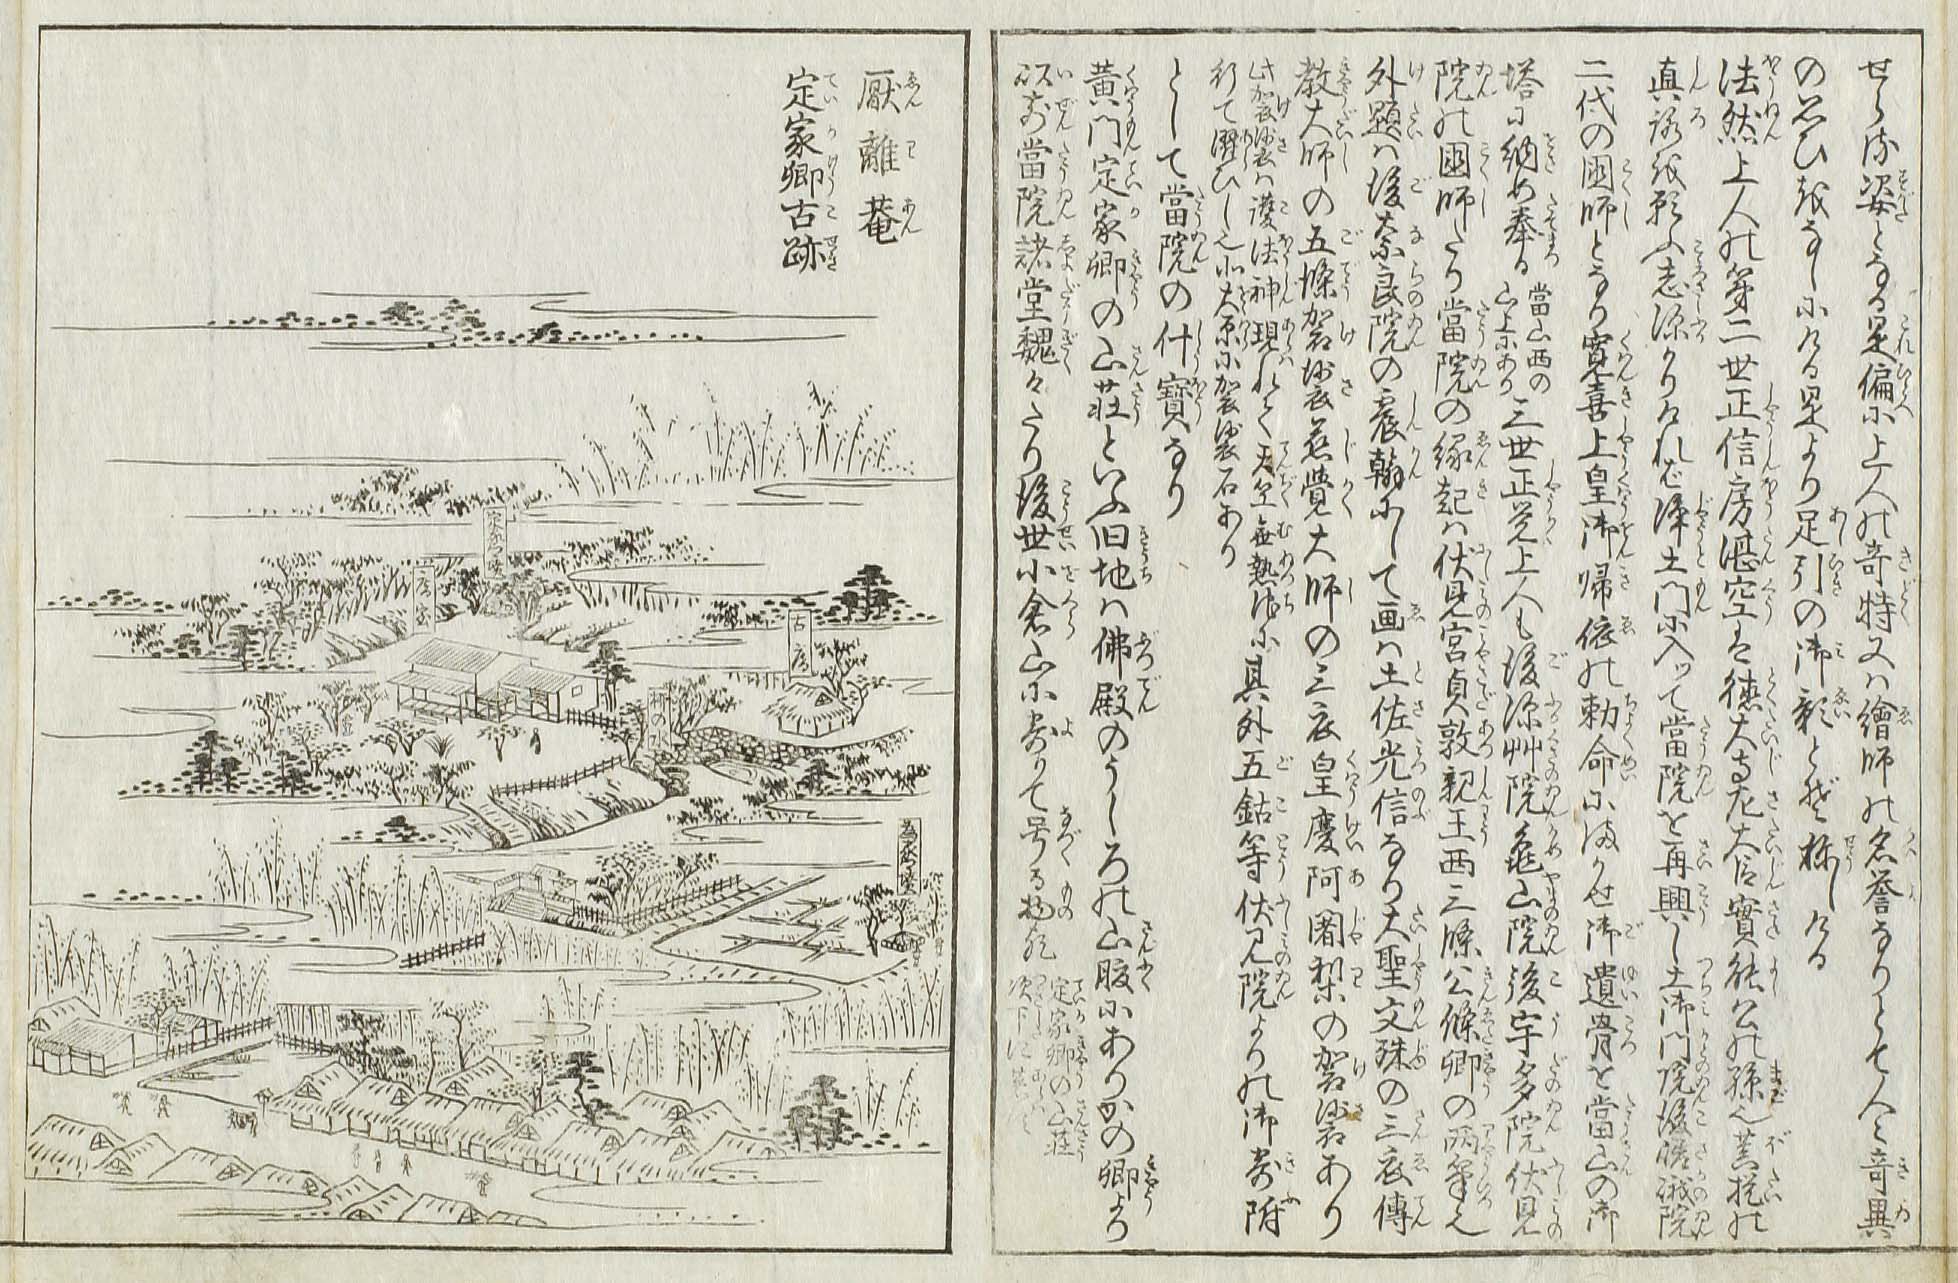 せらる姿となる是偏に上人の奇特又は繪師の名誉なりとて人々奇異
の思ひをなしにける是より足引の御影とぞ称しける
法然上人の第二世正信房湛空は徳大寺左大臣實能公の孫也菩提の
真路を願ふ志深かりければ浄土門に入つて當院を再興し土御門院後嵯峨院
二代の國師となり寛喜上皇御帰依の勅命にまかせ御遺骨を當山の御
塔に納め奉る
當山西の
山上にあり
三世正覚上人も後深艸院龜山院後宇多院伏見
院の國師たり當院の縁起は伏見宮貞敦親王西三條公條卿の両筆也
外題は後奈良院の震翰にして画は土佐光信なり大聖文殊の三衣傳
教大師の五條袈裟慈覺大師の三衣皇慶阿闍梨の袈裟あり
此袈裟は護法神現れて天竺無熱池に
行て濯ひし也北大原に袈裟石あり
其外五鈷等伏見院よりの御寄附
として當院の什寶なり
黄門定家卿の山荘といふ旧地は佛殿のうしろの山腹にありかの卿より
以前當院諸堂魏々たり後世小倉山に寄りて号る物歟
定家卿の山荘
次下に
厭離菴
定家卿古跡
定家つか
古庵
柳の水
為家塚